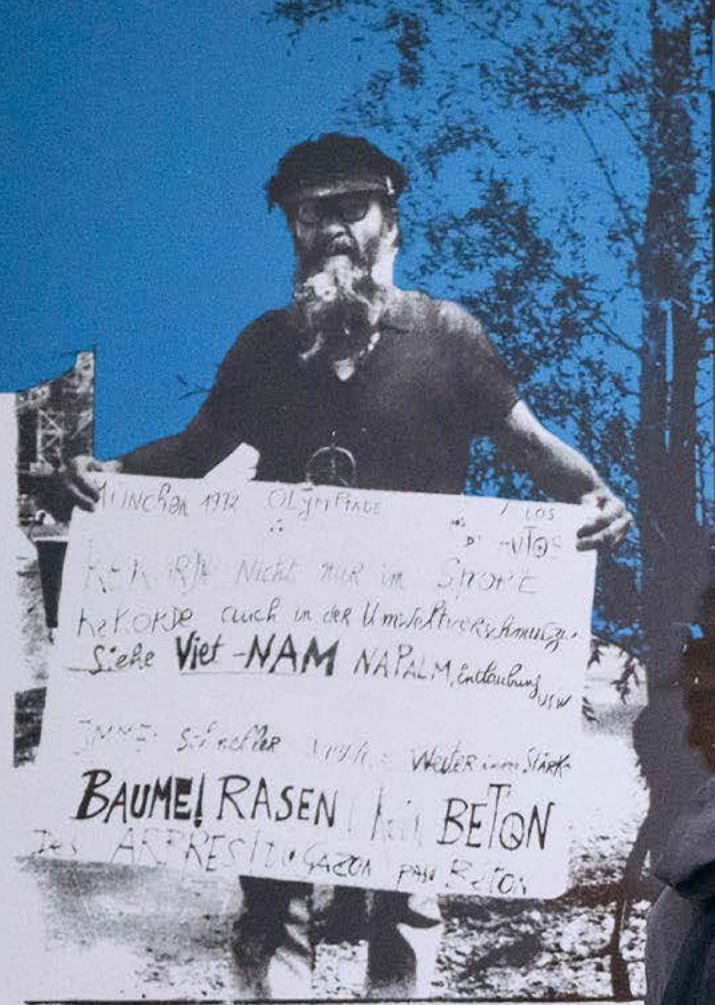 MÜNCHEN 1972 OLYMPIADE
PAS
D'AUTOS
REKORDE Nicht nur im SPORT
REKORDE auch in der Umweltverschmutzg.
Siehe Viet-NAM NAPALM, Entlaubung
USW
IMMER schneller Weiter STÄRK-
BAUME! RASEN! kein BETON
DES ARBRES! DU GAZON PAS BETON